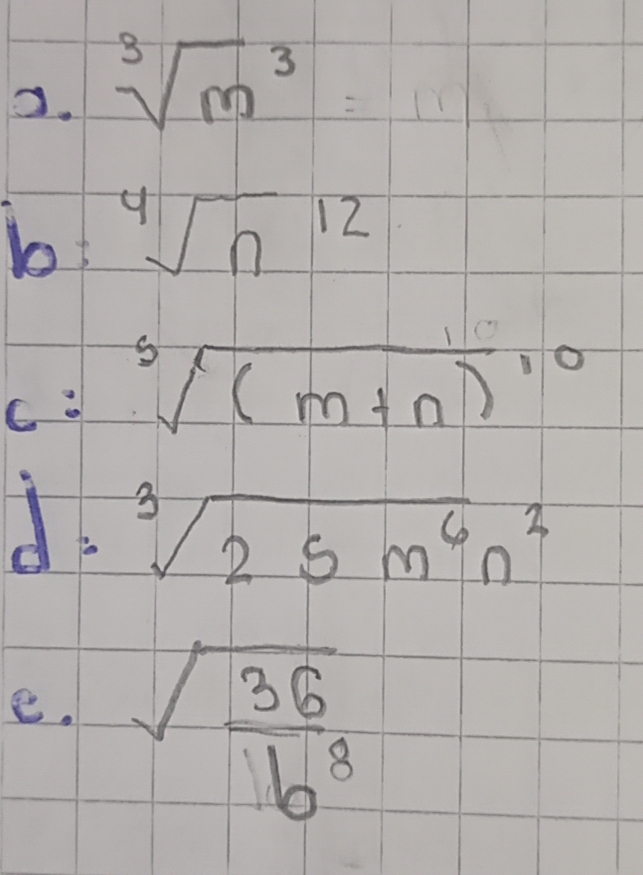 a. ∛m³ = m
b: ∜n¹²
c: ⁵√(m+n)¹⁰
d: ³√25m⁶n²
e. √36/b⁸